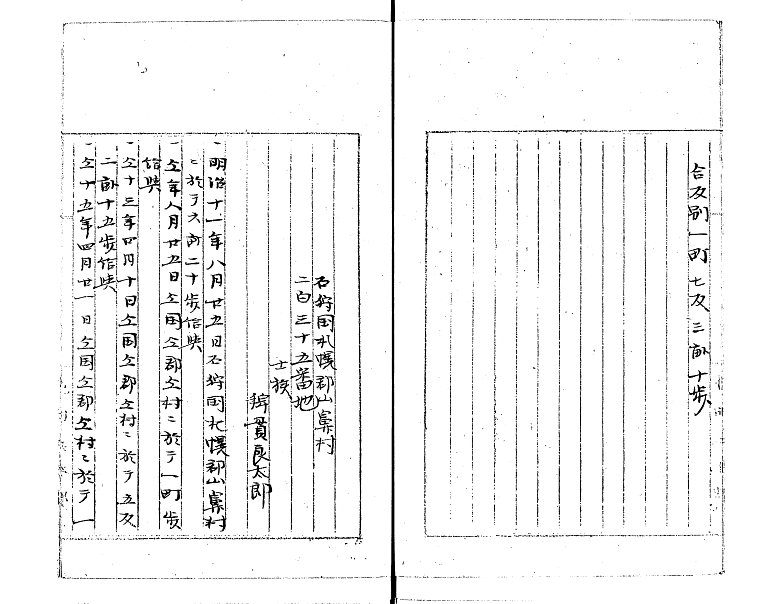 合反別一町七反三畝十歩
石狩国札幌郡山鼻村
二百三十五番地
士族
貫良太郎
一明治十一年八月廿五日石狩国札幌郡山鼻村
ニ於テ六畝二十歩給与
一仝年八月廿五日仝国仝郡仝村ニ於テ一町歩
給与
一仝十三年四月十日仝国仝郡仝村ニ於テ五反
二畝十五歩給与
一仝十五年四月廿一日仝国仝郡仝村ニ於テ一